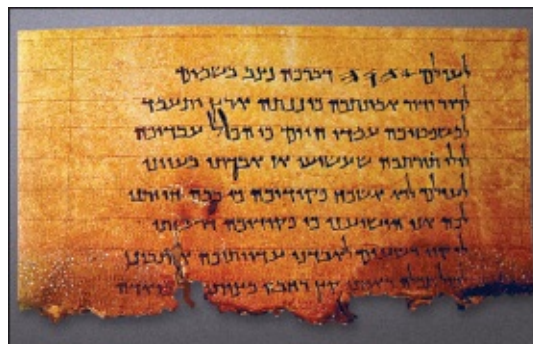 לעולם 𐤉𐤄𐤅𐤄 דברכה נצב בשמים
לדור ודור אמונתכה כוננתה ארץ ותעמד
למשפטיכה עמדו היום כי הכול עבדיכה
לולי תורתכה שעשועי אז אבדתי בעווני
לעולם לוא אשכח פקודיכה כי במה חייתני
לכה אני הושיעני כי פקודיכה דרשתי
קוו רשעים לאבדני עדוותיכה אתבונן
תכלה ראיתי קץ רחבה